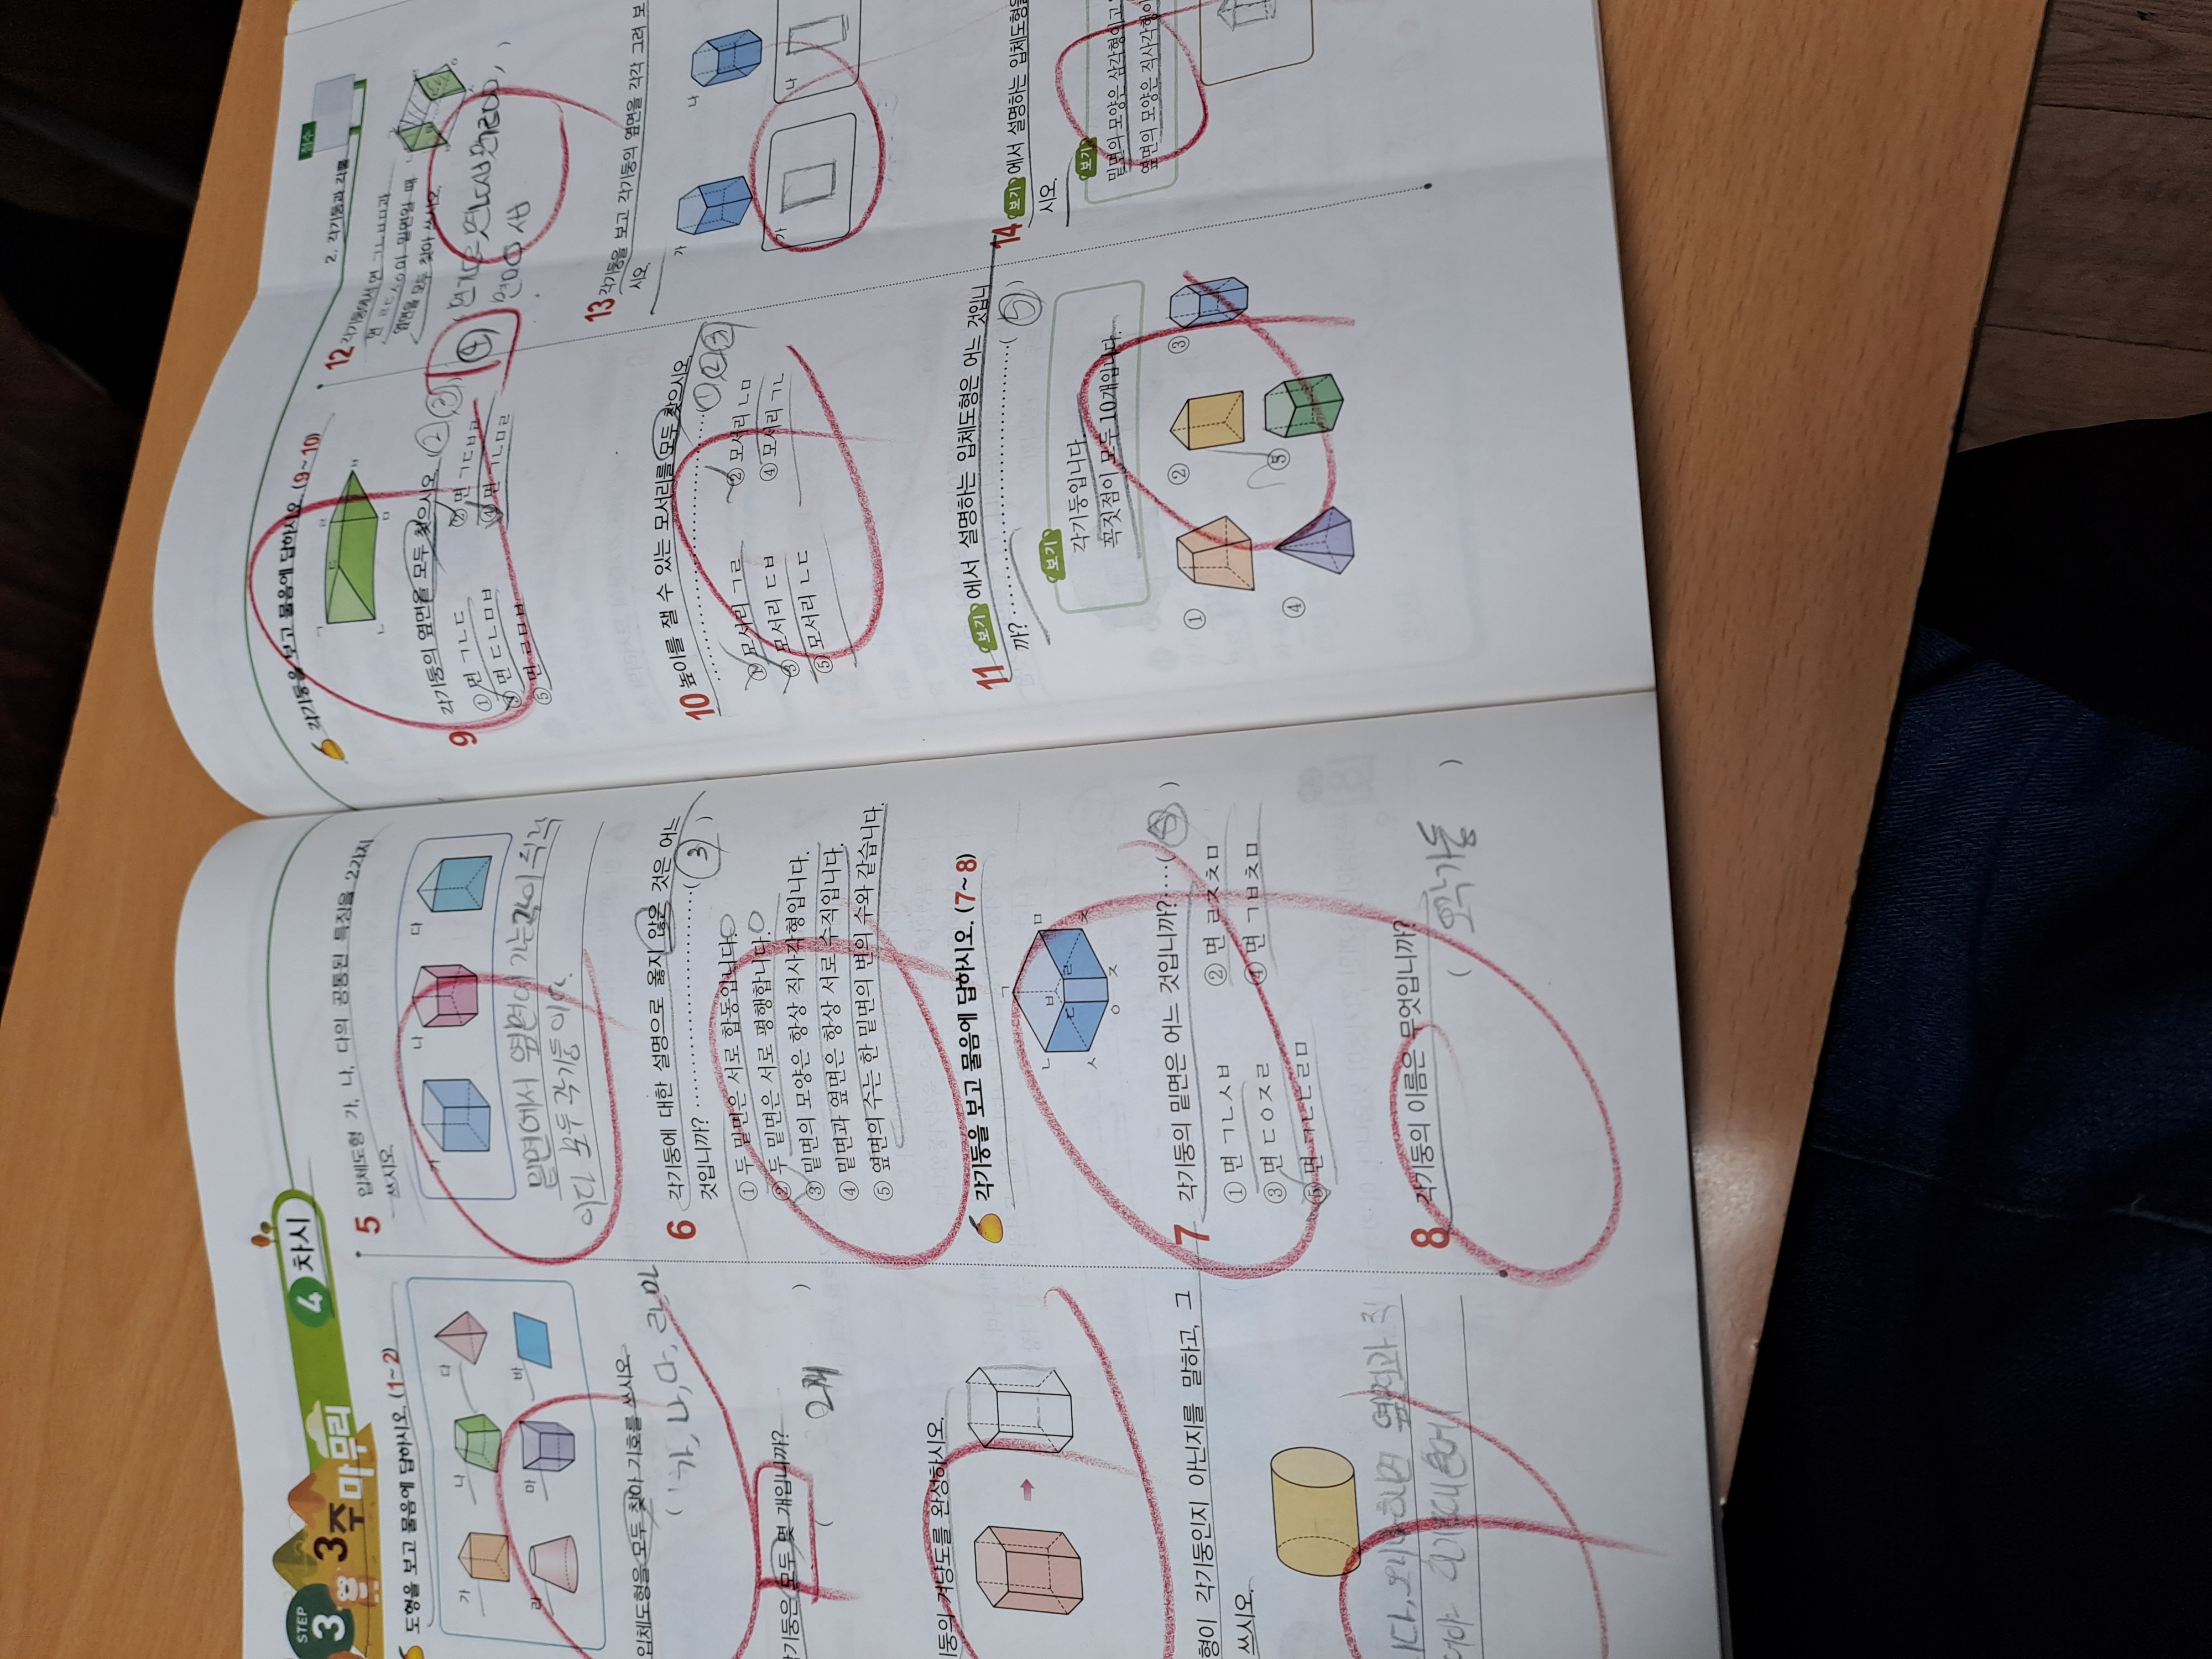 STEP
3
3주 마무리
4 차시
도형을 보고 물음에 답하시오. (1~2)
가
나
다
라
마
바
입체도형을 모두 찾아 기호를 쓰시오.
( 가, 나, 다, 라, 마
기둥은 모두 몇 개입니까?
( 2개 )
기둥의 겨냥도를 완성하시오.
형이 각기둥인지 아닌지를 말하고, 그
쓰시오.
5 입체도형 가, 나, 다의 공통된 특징을 2가지
쓰시오.
가
나
다
밑면에서 옆면이
이다 모두 각기둥이다.
6 각기둥에 대한 설명으로 옳지 않은 것은 어느
것입니까? ( ③ )
① 두 밑면은 서로 합동입니다.
② 두 밑면은 서로 평행합니다.
③ 밑면의 모양은 항상 직사각형입니다.
④ 밑면과 옆면은 항상 서로 수직입니다.
⑤ 옆면의 수는 한 밑면의 변의 수와 같습니다.
각기둥을 보고 물음에 답하시오. (7~8)
ㄱ
ㄴ
ㄷ
ㄹ
ㅁ
ㅂ
ㅅ
ㅇ
ㅈ
ㅊ
7 각기둥의 밑면은 어느 것입니까? ( ⑤ )
① 면 ㄱㄴㅅㅂ
② 면 ㄹㅈㅊㅁ
③ 면 ㄷㅇㅈㄹ
④ 면 ㄱㅂㅊㅁ
⑤ 면 ㄱㄴㄷㄹㅁ
8 각기둥의 이름은 무엇입니까?
( 오각기둥 )
2. 각기둥과 각뿔
점수
각기둥을 보고 물음에 답하시오. (9~10)
9 각기둥의 옆면을 모두 찾으시오. ② ③ ④
① 면 ㄱㄴㄷ
② 면 ㄱㄷㅂㄹ
③ 면 ㄷㄴㅁㅂ
④ 면 ㄱㄴㅁㄹ
⑤ 면 ㄹㅁㅂ
10 높이를 잴 수 있는 모서리를 모두 찾으시오.
① ② ③
① 모서리 ㄱㄹ
② 모서리 ㄴㅁ
③ 모서리 ㄷㅂ
④ 모서리 ㄱㄴ
⑤ 모서리 ㄴㄷ
11 보기 에서 설명하는 입체도형은 어느 것입니
까? ( ⑤ )
보기
각기둥입니다.
꼭짓점이 모두 10개입니다.
①
②
③
④
⑤
12 각기둥에서 면 ㄱㄴㅂㅁ과
면 ㄹㄷㅅㅇ이 밑면일 때
옆면을 모두 찾아 쓰시오.
13 각기둥을 보고 각기둥의 옆면을 각각 그려 보
시오.
가
나
가
나
14 보기 에서 설명하는 입체도형을
시오.
보기
밑면의 모양은 삼각형이고
옆면의 모양은 직사각형이